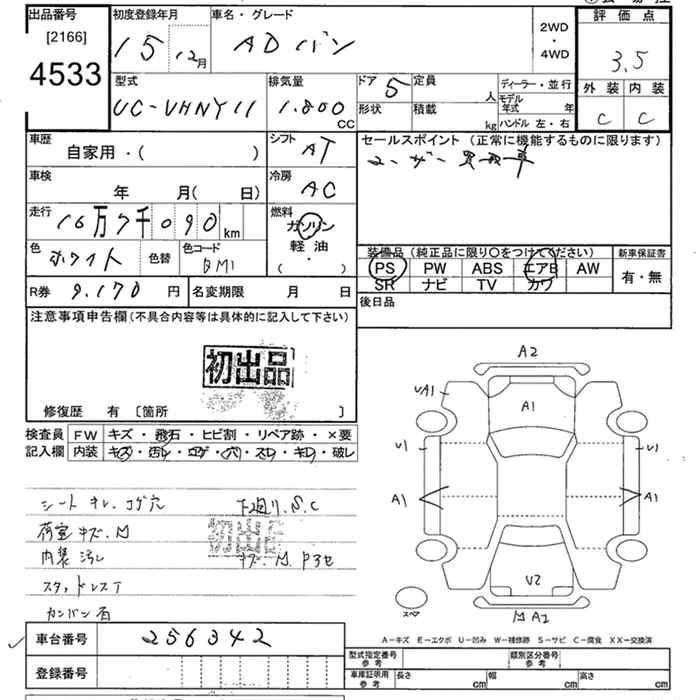 出品番号 初度登録年月 車名・グレード 2WD・4WD 評価点
[2166]
4533
15 12月 ADバン 3.5
型式 排気量 ドア 定員 ディーラー・並行 外装 内装
UC-VHNY11 1.800 CC 5 人 モデル年式 年 C C
形状 積載 kg ハンドル 左・右
車歴 シフト セールスポイント (正常に機能するものに限ります)
自家用・( ) AT ユーザー買取車
車検 冷房
年 月( 日) AC
走行 燃料
16万7千090km ガソリン
色 色替 色コード 軽油
ホワイト BM1 ・ ( )
装備品 (純正品に限り○をつけてください) 新車保証書
PS PW ABS エアB AW 有・無
SR ナビ TV カワ
R券 9.170 円 名変期限 月 日
後日品
注意事項申告欄(不具合内容等は具体的に記入して下さい)
初出品
修復歴 有 [箇所 ]
検査員 FW キズ・飛石・ヒビ割・リペア跡・×要
記入欄 内装 キズ・汚レ・コゲ・穴・スレ・キレ・破レ
シート キレ.コゲ穴 下廻り.S.C
荷室キズ.M
初出品
内装汚レ キズ.M
スタッドレスT
カンバン有
A2
UA1
A1
U1 U1
A1 A1
U2
スペア
M A2
A-キズ E-エクボ U-凹み W-補修跡 S-サビ C-腐食 XX-交換済
車台番号 256342
型式指定番号 参考 類別区分番号 参考
登録番号
車庫証明用 参考 長さ cm 幅 cm 高さ cm